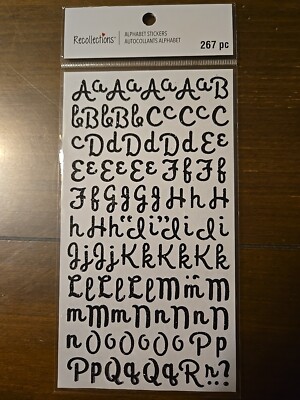 Recollections™
ALPHABET STICKERS
AUTOCOLLANTS ALPHABET
267 pc
AaAAAAaB
bBBbBCcCC
cDdDdDdEe
EeEeFfFf
FfGJGJHhH
hHhi“Ii”Ii
JjJjKkKkKk
LlLlLlMmm
mMmnNnNn
nOoOoOoPp
PpQqQqRr.?